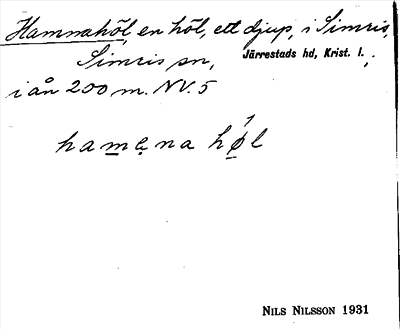 Hamnahöl, en höl, ett djup, i Simris,
Simris sn, Järrestads hd, Krist. l.,
i ån 200 m. NV. 5
hamena høl
NILS NILSSON 1931